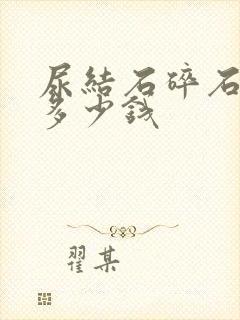 尿結石碎石
多少錢
翟某